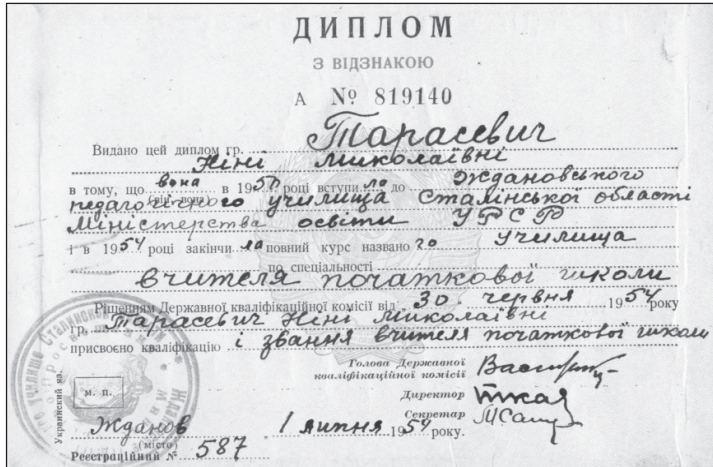 ДИПЛОМ
З ВІДЗНАКОЮ
А № 819140
Видано цей диплом гр. Тарасевич
Ніні Миколаївні
в тому, що вона в 1950 році вступила до Ждановського
(він, вона)
педагогічного училища Сталінської області
Міністерства освіти УРСР
і в 1954 році закінчила повний курс названого училища
по спеціальності
вчителя початкової школи
Рішенням Державної кваліфікаційної комісії від 30 червня 1954 року
гр. Тарасевич Ніні Миколаївні
присвоєно кваліфікацію і звання вчителя початкової школи
Голова Державної
кваліфікаційної комісії
Директор
Секретар
М. П.
Украинский яз.
Жданов 1 липня 1954 року.
(місто)
Реєстраційний № 587